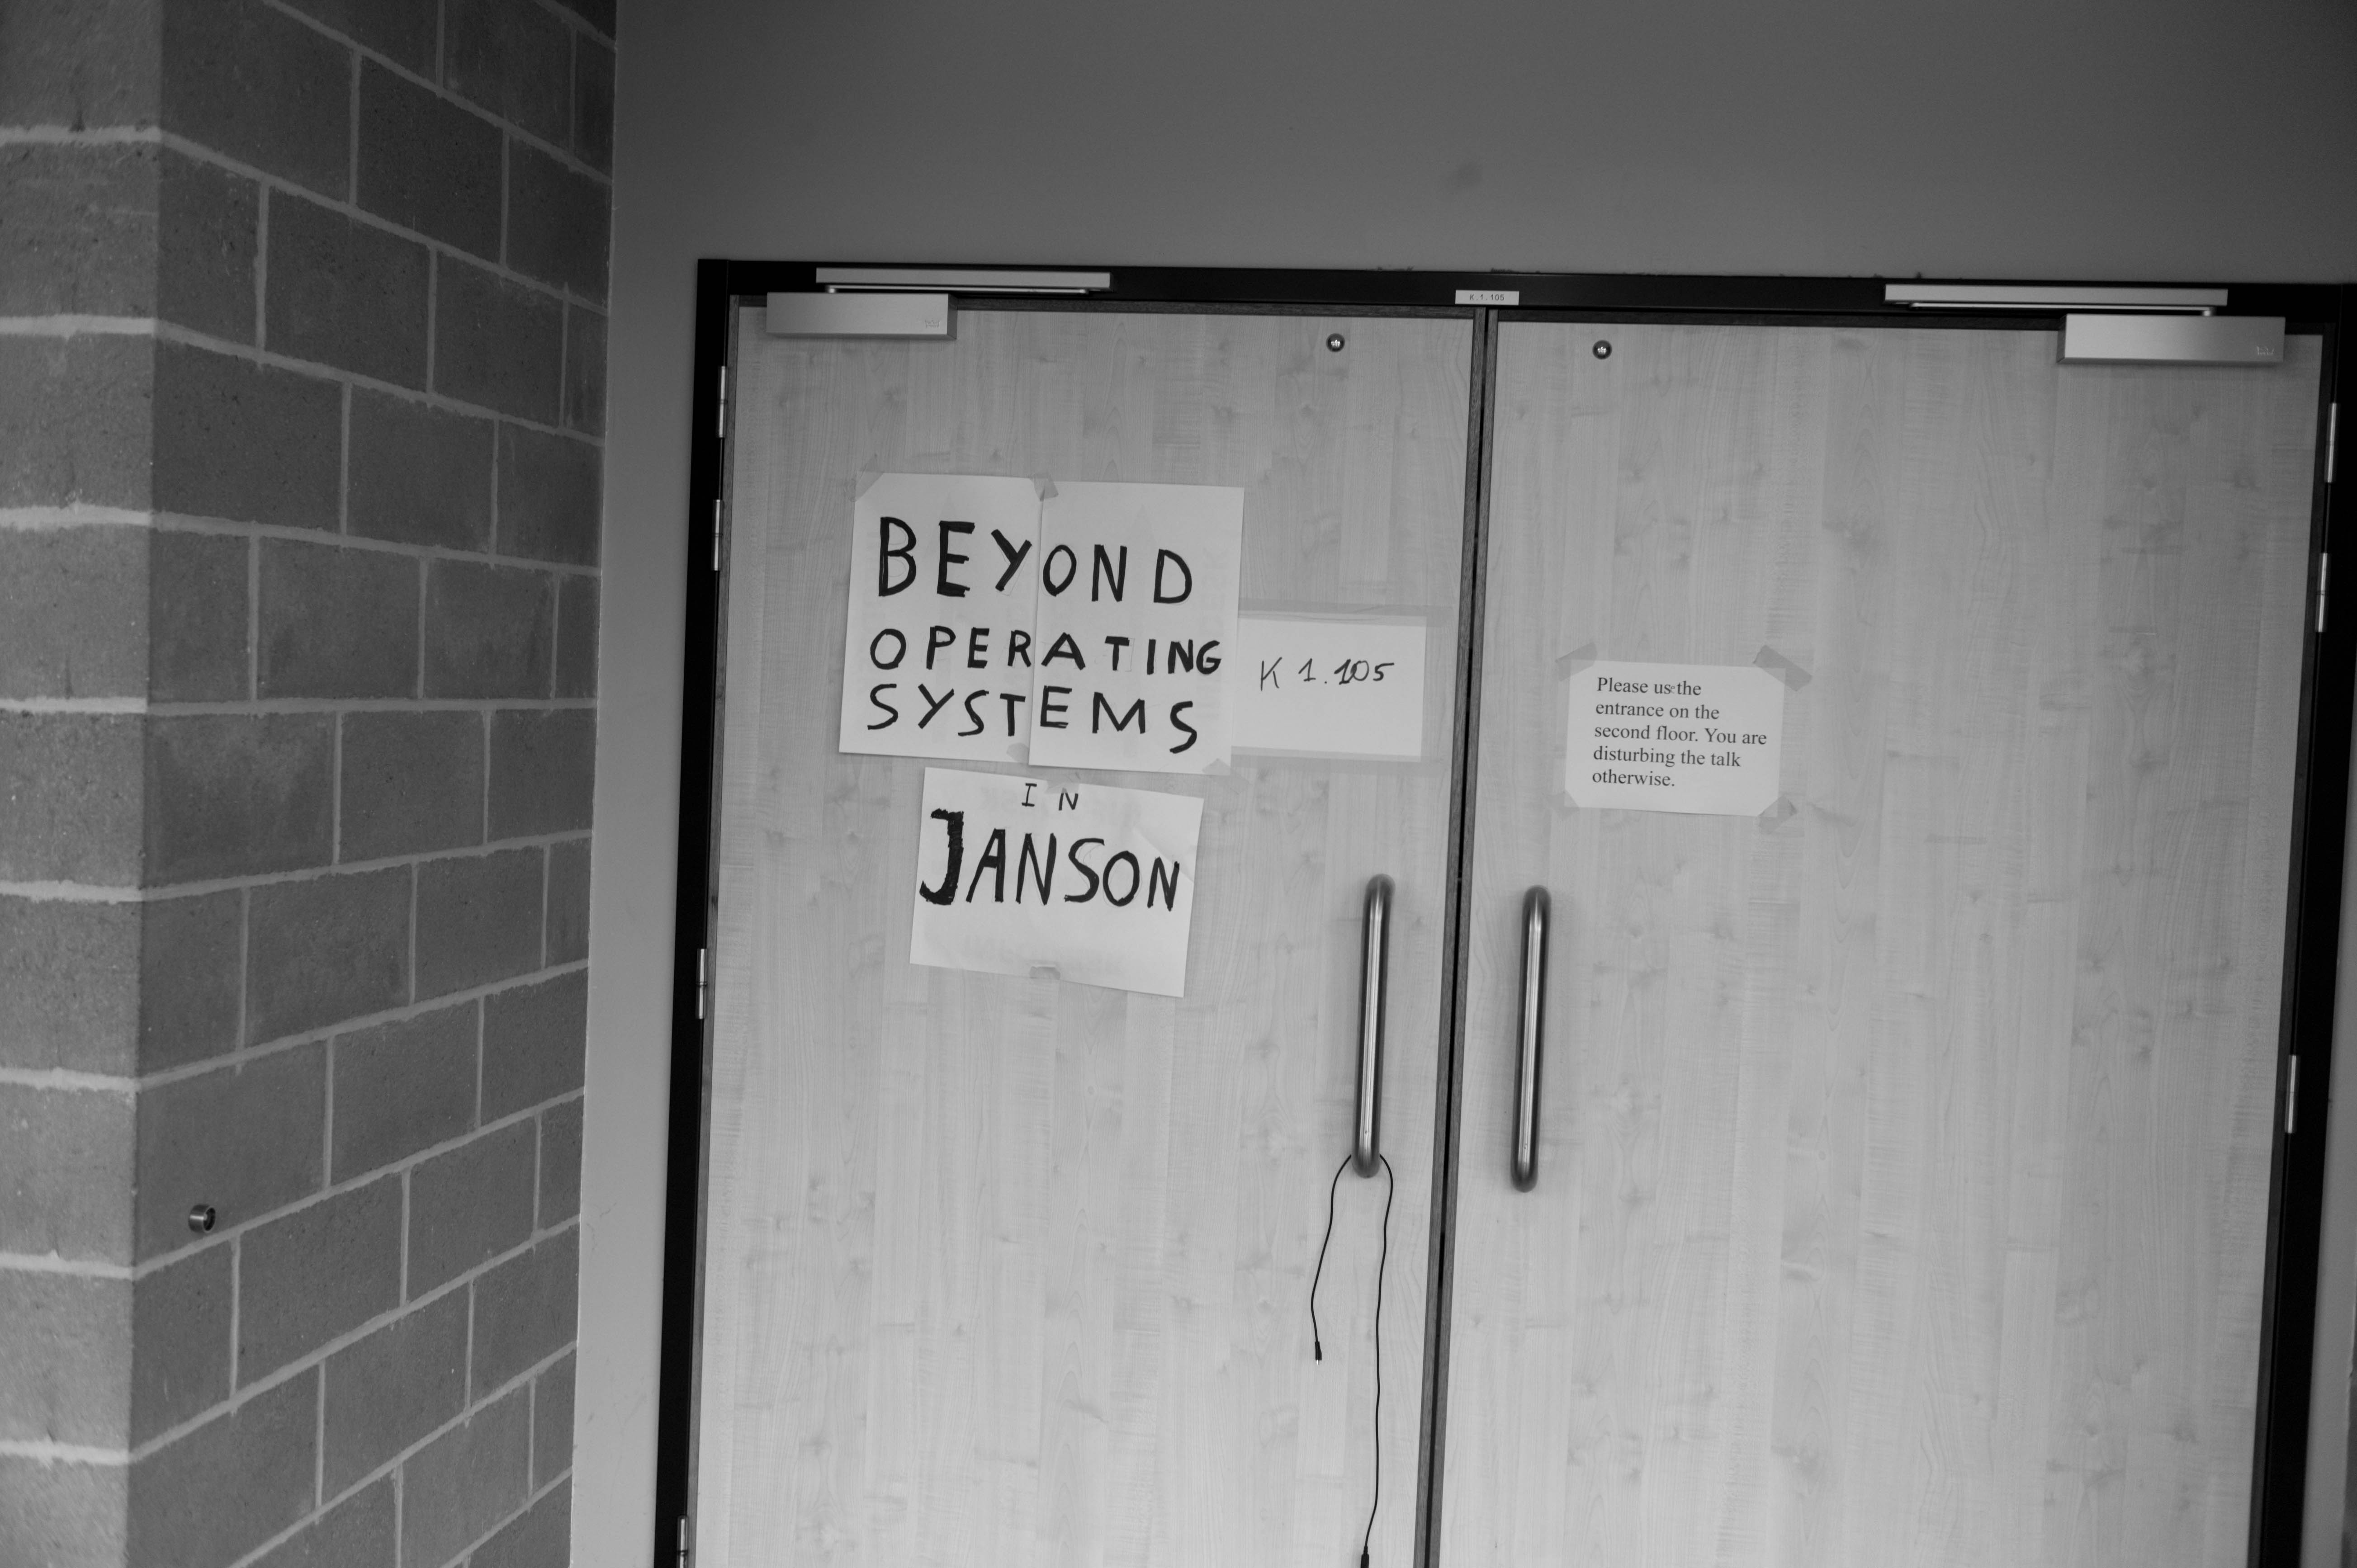 K.1.105
BEYOND
OPERATING
SYSTEMS
K 1.105
IN
JANSON
Please use the
entrance on the
second floor. You are
disturbing the talk
otherwise.